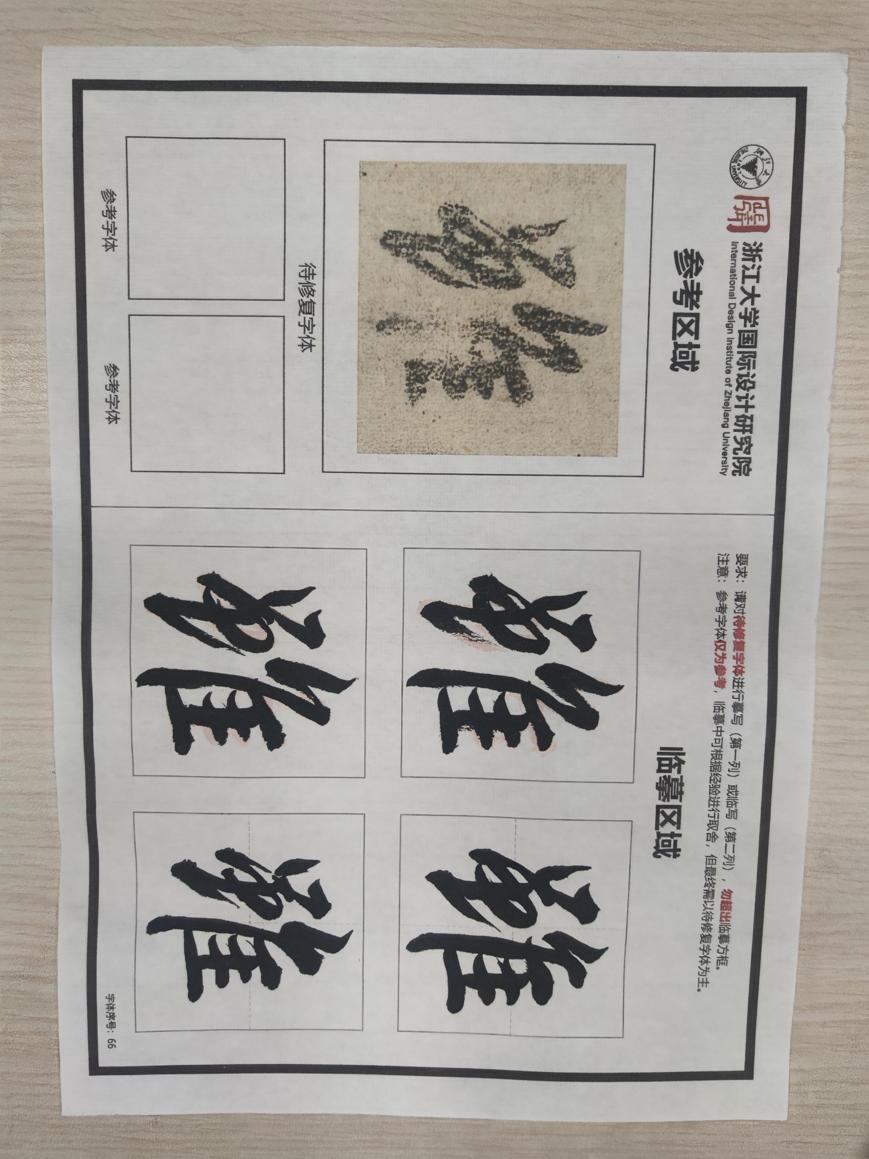 浙江大学国际设计研究院
International Design Institute of Zhejiang University
参考区域
雖
待修复字体
参考字体
参考字体
要求：请对待修复字体进行摹写（第一列）或临写（第二列），勿超出临摹方框。
注意：参考字体仅为参考，临摹中可根据经验进行取舍，但最终需以待修复字体为主。
临摹区域
雖 雖
雖 雖
字体序号：66